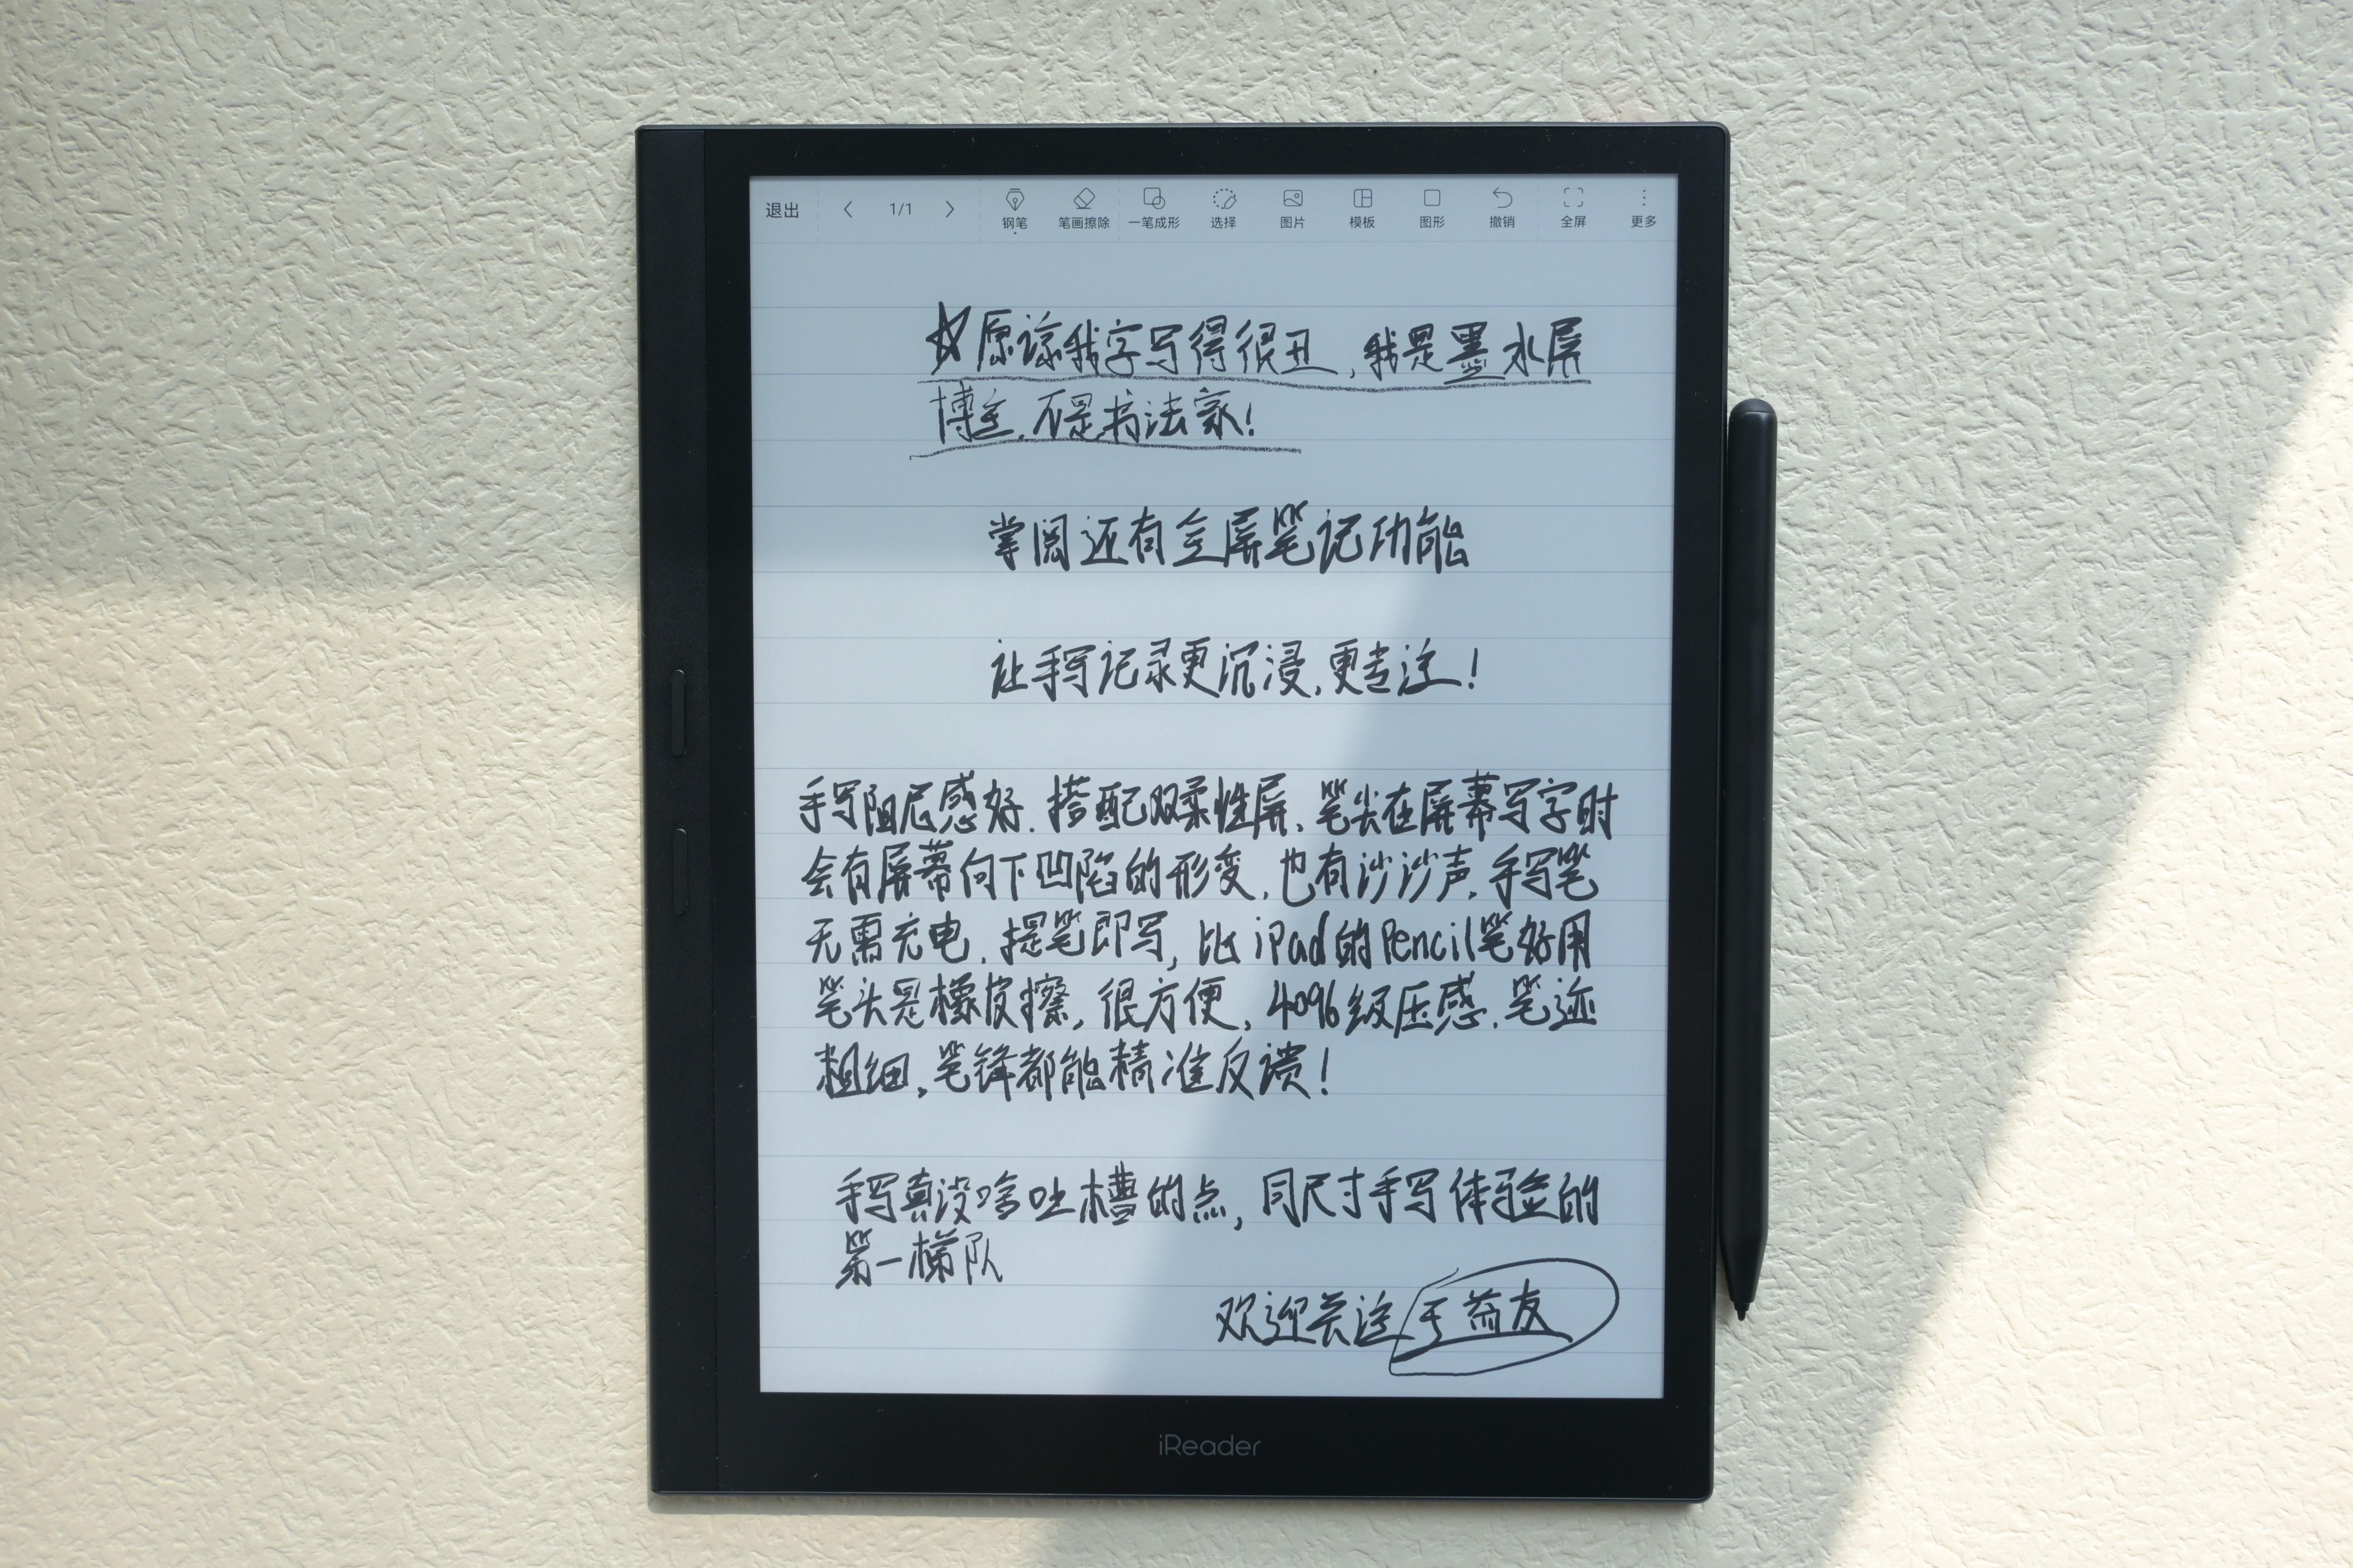 退出 < 1/1 > 钢笔 笔画擦除 一笔成形 选择 图片 模板 图形 撤销 全屏 更多
☆原谅我字写得很丑,我是墨水屏
博主,不是书法家!
掌阅还有全屏笔记功能
让手写记录更沉浸,更专注!
手写阻尼感好.搭配双柔性屏、笔尖在屏幕写字时
会有屏幕向下凹陷的形变,也有沙沙声.手写笔
无需充电.提笔即写,比iPad的Pencil笔好用
笔头是橡皮擦,很方便,4096级压感.笔迹
粗细,笔锋都能精准反馈!
手写真没啥吐槽的点,同尺寸手写体验的
第一梯队
欢迎关注于益友
iReader